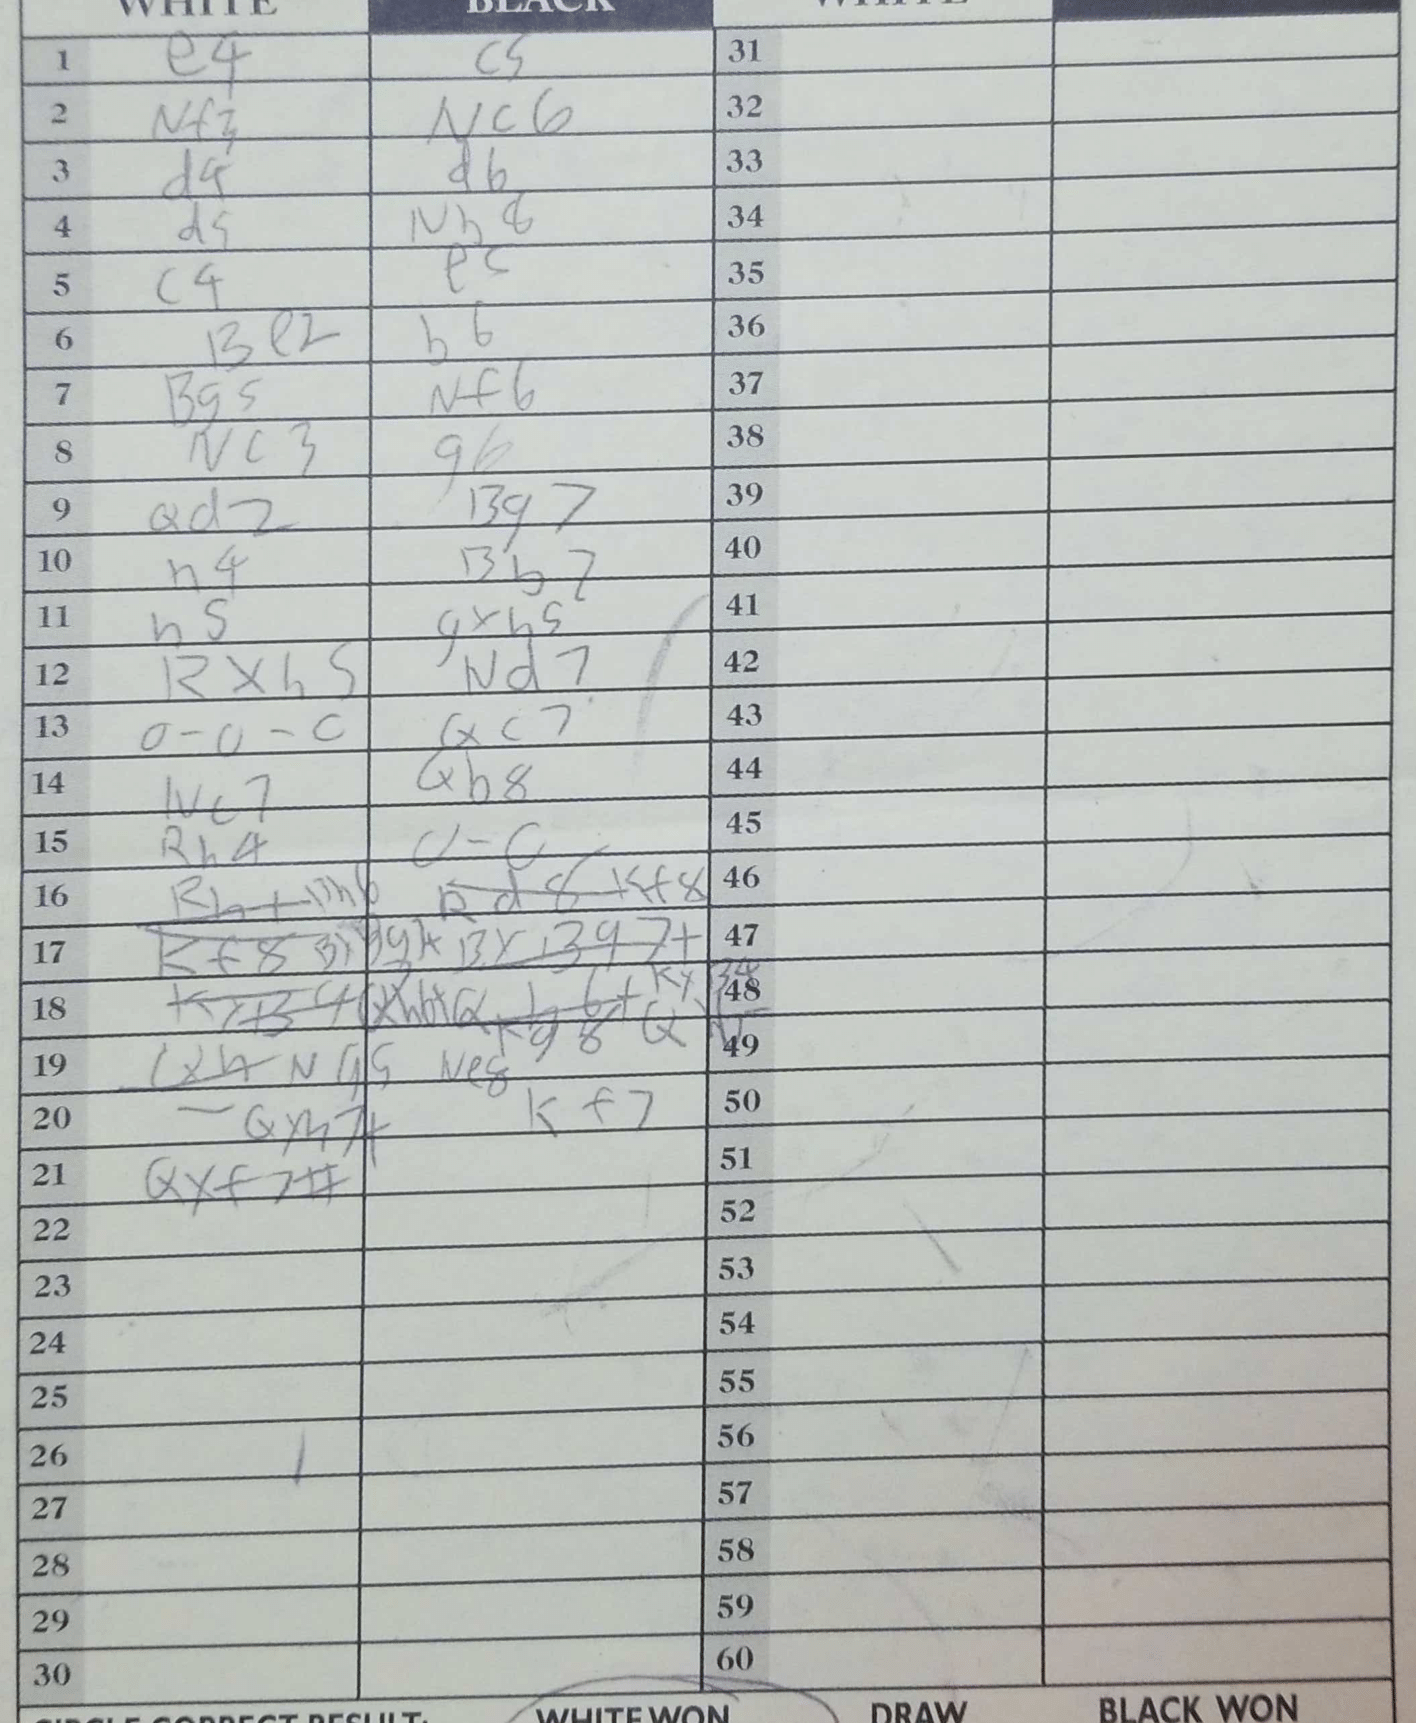 WHITE BLACK WHITE
1 e4 c5 31
2 Nf3 Nc6 32
3 d4 d6 33
4 d5 Nb8 34
5 c4 e5 35
6 Be2 b6 36
7 Bg5 Nf6 37
8 Nc3 g6 38
9 Qd2 Bg7 39
10 h4 Bb7 40
11 h5 gxh5 41
12 Rxh5 Nd7 42
13 0-0-0 Qc7 43
14 Qb8 44
15 Rh4 0-0 45
16 Bh6 Rd8 Kf8 46
17 Kf8 BxBg7+ BxBg7+ 47
18 Qxh6+ Qh6+ Kg8 48
19 Ng5 Ne8 49
20 Qxh7+ Kf7 50
21 Qxf7# 51
22 52
23 53
24 54
25 55
26 56
27 57
28 58
29 59
30 60
CIRCLE CORRECT RESULT: WHITE WON DRAW BLACK WON